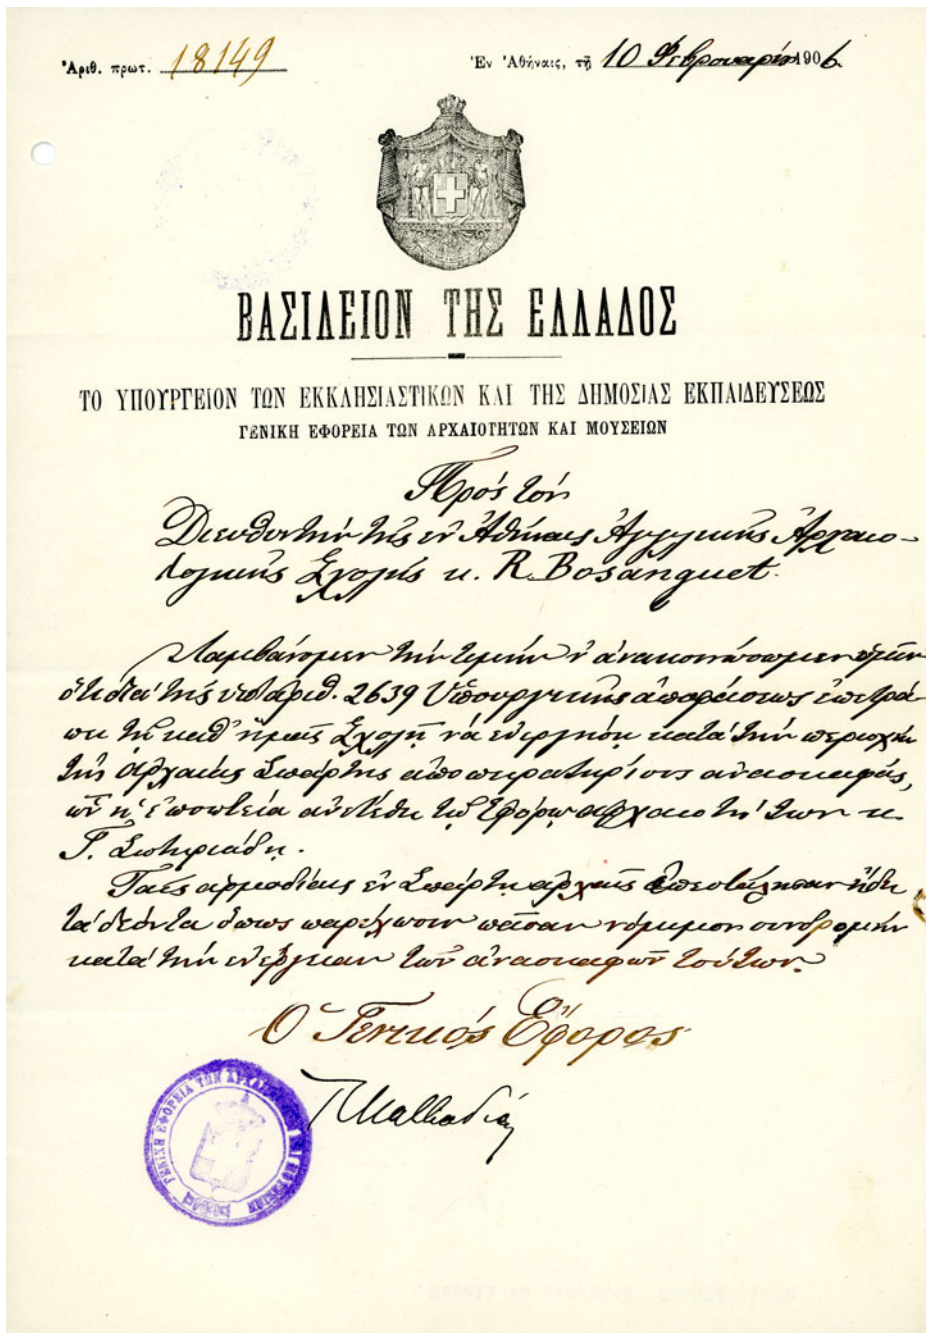 Ἀριθ. πρωτ. 18149
Ἐν Ἀθήναις, τῇ 10 Φεβρουαρίου 1906
ΒΑΣΙΛΕΙΟΝ ΤΗΣ ΕΛΛΑΔΟΣ
ΤΟ ΥΠΟΥΡΓΕΙΟΝ ΤΩΝ ΕΚΚΛΗΣΙΑΣΤΙΚΩΝ ΚΑΙ ΤΗΣ ΔΗΜΟΣΙΑΣ ΕΚΠΑΙΔΕΥΣΕΩΣ
ΓΕΝΙΚΗ ΕΦΟΡΕΙΑ ΤΩΝ ΑΡΧΑΙΟΤΗΤΩΝ ΚΑΙ ΜΟΥΣΕΙΩΝ
Πρός τόν
Διευθυντήν τῆς ἐν Ἀθήναις Ἀγγλικῆς Ἀρχαιο-
λογικῆς Σχολῆς κ. R. Bosanquet.
Λαμβάνομεν τήν τιμήν ν' ἀνακοινώσωμεν ὑμῖν
ὅτι διά τῆς ὑπ' ἀριθ. 2639 Ὑπουργικῆς ἀποφάσεως ἐπετρά-
πη τῇ καθ' ὑμᾶς Σχολῇ νά ἐνεργήσῃ κατά τήν περιοχήν
τῆς ἀρχαίας Σπάρτης ἀποπειρατηρίους ἀνασκαφάς,
ὧν ἡ ἐποπτεία ἀνετέθη τῷ Ἐφόρῳ ἀρχαιοτήτων κ.
Γ. Σωτηριάδῃ.
Ταῖς ἁρμοδίαις ἐν Σπάρτῃ ἀρχαῖς ἀπεστάλησαν ἤδη
τά δέοντα ὅπως παρέχωσιν πᾶσαν νόμιμον συνδρομήν
κατά τήν ἐνέργειαν τῶν ἀνασκαφῶν τούτων.
Ὁ Γενικός Ἔφορος
Π. Καββαδίας
ΓΕΝΙΚΗ ΕΦΟΡΕΙΑ ΤΩΝ ΑΡΧΑΙΟΤΗΤΩΝ ΚΑΙ ΜΟΥΣΕΙΩΝ